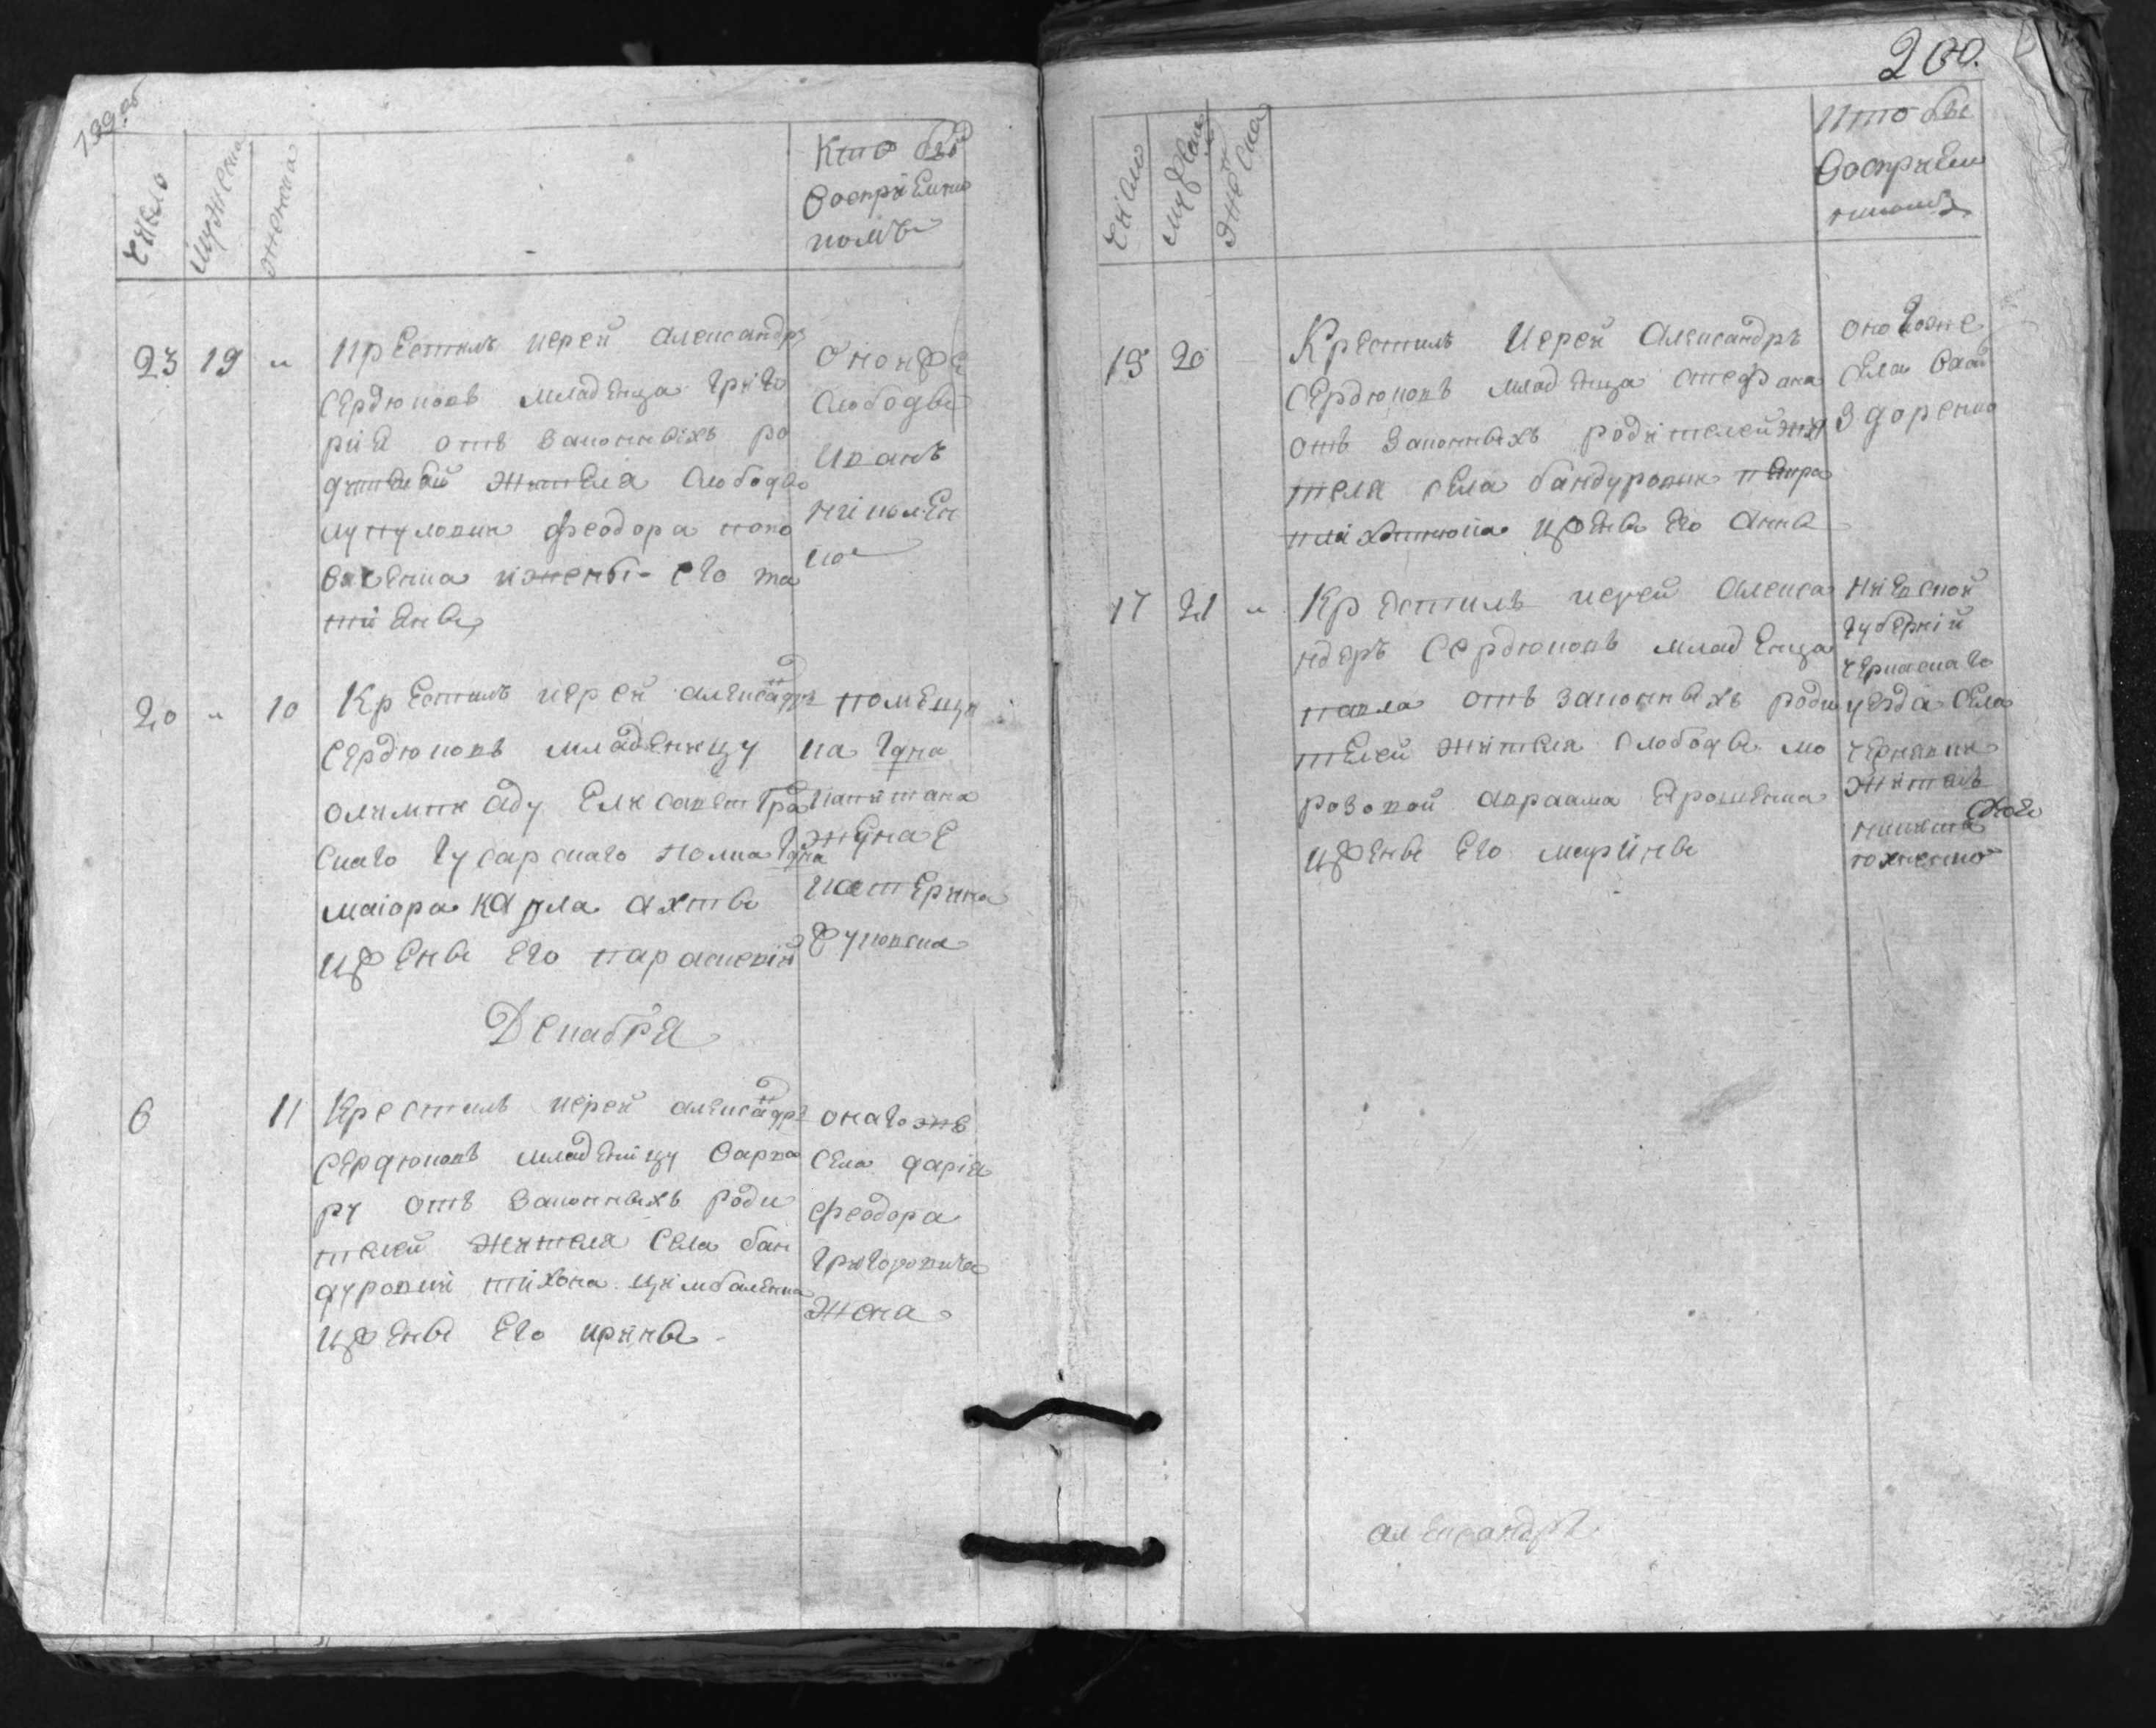 199 об
число
мужеска
женска
Кто был
восприемни
комъ
23 19 "
крестилъ иерей александръ
сердюковъ младенца григо
рия отъ законныхъ ро
дителей жителя слободы
федора ново
енка и жены его та
тияны
оной же
слободы
иванъ
20 " 10
Крестилъ иерей александръ
сердюковъ младеницу
олимпиаду елисаветгра
скаго гусарскаго полка гдна
маіора карла ахты
и жены его параскевіи
помещи
ка гдна
капитана
жена е
катерина
Декабря
6 11
Крестилъ иерей александръ
сердюковъ младеницу варва
ру отъ законныхъ роди
телей жителя села бан
дуровки тихона цимбаленка
и жены его ирины
онаго же
села дарія
феодора
григоровича
жена
200.
число
мужеска
женска
кто бы
восприем
никомъ
15 20
Крестилъ Иерей Александръ
сердюковъ младенца стефана
отъ законныхъ родителей жи
теля села бандуровки
и жены его анны
оного же
села
здоренко
17 21 "
Крестилъ иерей алекса
ндеръ сердюковъ младенца
павла отъ законныхъ роди
телей жителя слободы мо
розовой авраама ярошенка
и жены его марины
киевской
губерніи
черкаскаго
уезда села
житель
александръ